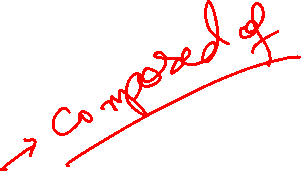 → Composed of